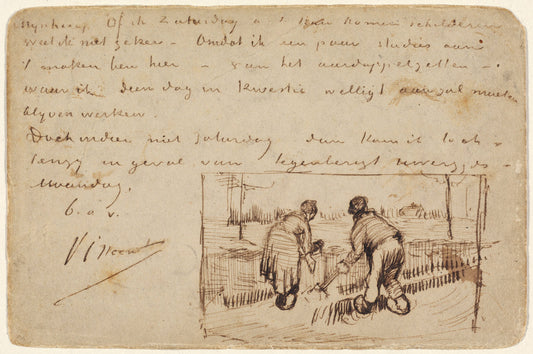 Mynheer, Of ik Zaturdag a s kan komen schilderen
weet ik niet zeker – Omdat ik een paar studies aan
't maken ben hier – van het aardappelzetten –
waar ik dien dag in kwestie welligt aan zal moeten
blyven werken.
Doch indien niet Saturdag dan kom ik toch –
tenzy in geval van tegenberigt Uwerzyds –
Maandag.
b. a. v.
Vincent